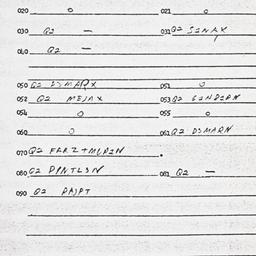 020 0 021 0
030 Q2 — 031 Q2 SINAX
040 Q2 —
050 Q2 051 0
052 Q2 MEJAX 053 Q2
054 0 055 0
060 0 061 Q2 DSMARN
070 Q2
080 Q2 081 Q2 —
090 Q2 PAJPT